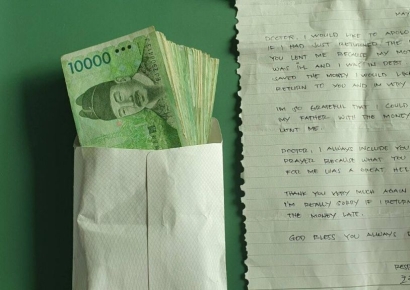 10000
MAY
DOCTOR, I WOULD LIKE TO
IF I HAD JUST RETURNED THE
YOU LENT ME BECAUSE MY MOT
WAS ILL AND I WAS IN DEBT
SAVED THE MONEY I WOULD LIKE
RETURN TO YOU AND I'M VERY
I'M SO GRATEFUL THAT I COULD
MY FATHER WITH THE MONEY
LENT ME.
DOCTOR, I ALWAYS INCLUDE YOU
PRAYER BECAUSE WHAT YOU
FOR ME WAS A GREAT HEL
THANK YOU VERY MUCH AGAIN
I'M REALLY SORRY IF I RETURN
THE MONEY LATE.
GOD BLESS YOU ALWAYS